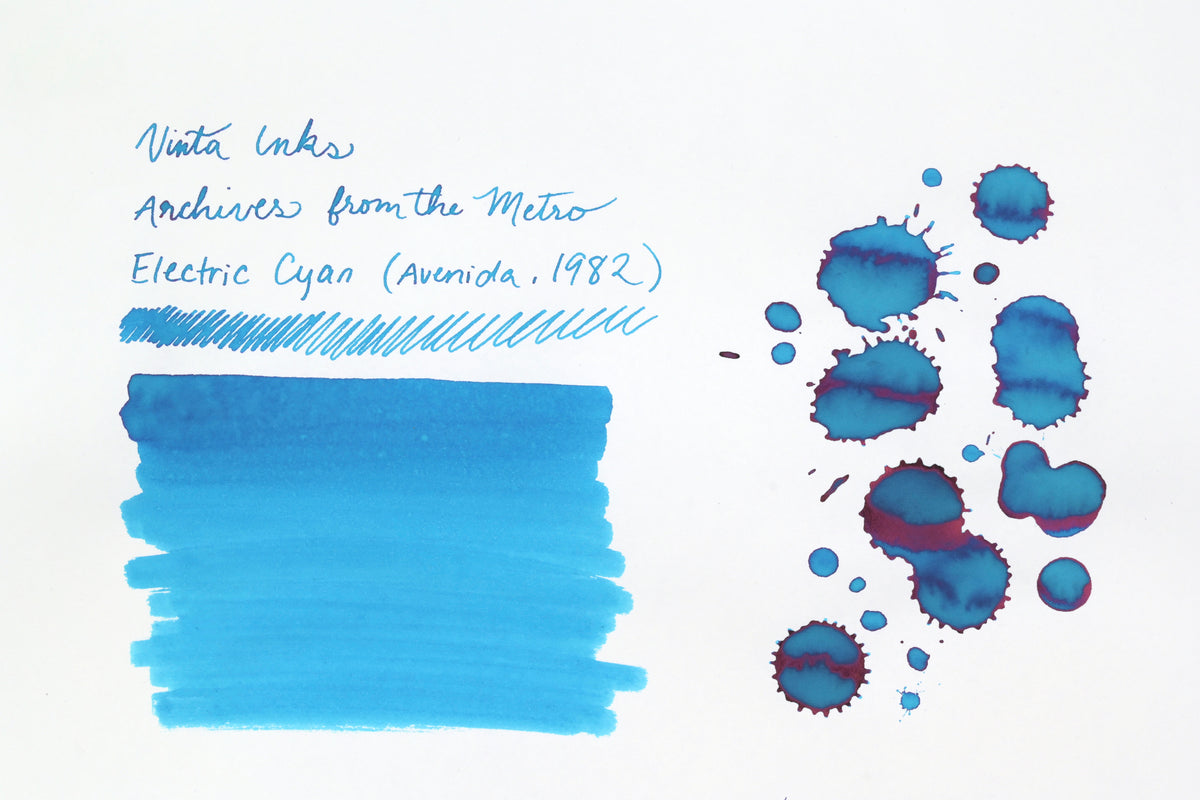 Vinta Inks
Archives from the Metro
Electric Cyan (Avenida. 1982)